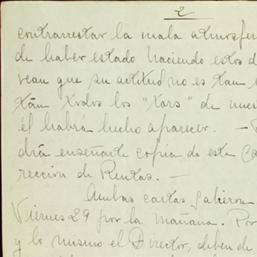 2
contrarrestar la mala atmósfer
de haber estado haciendo estos d
vean que su actitud no es tan
tán todos los "Xors" de nues
él habrá hecho aparecer. —
drá enseñarte copia de esta Ca
rección de Rentas. —
Ambas cartas salieron
Viernes 29 por la mañana. Por
y lo mismo el Director, deben de